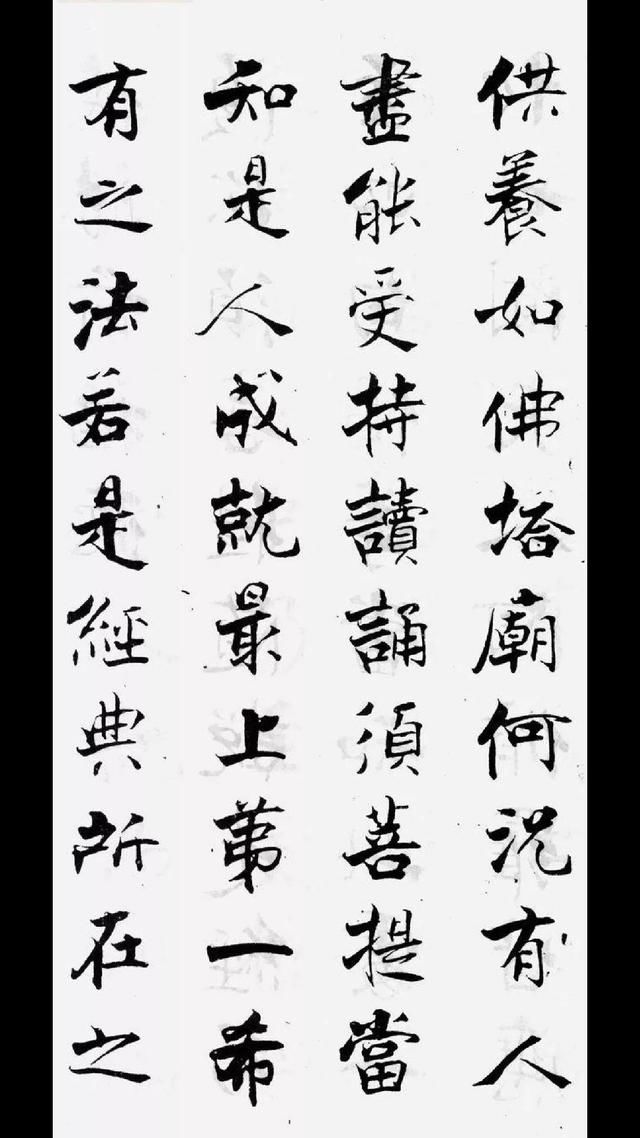 供養如佛塔廟何況有人
盡能受持讀誦須菩提當
知是人成就最上第一希
有之法若是經典所在之